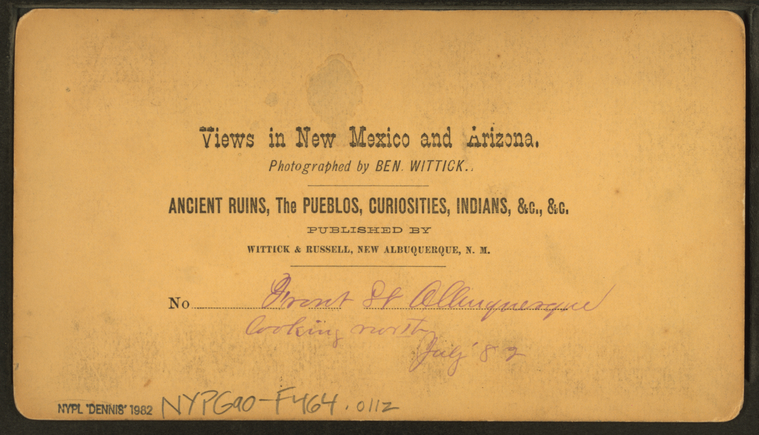 Views in New Mexico and Arizona.
Photographed by BEN. WITTICK.
ANCIENT RUINS, The PUEBLOS, CURIOSITIES, INDIANS, &c., &c.
PUBLISHED BY
WITTICK & RUSSELL, NEW ALBUQUERQUE, N. M.
No Front St Albuquerque
looking north
July 82
NYPL 'DENNIS' 1982 NYPG90-F464.0112